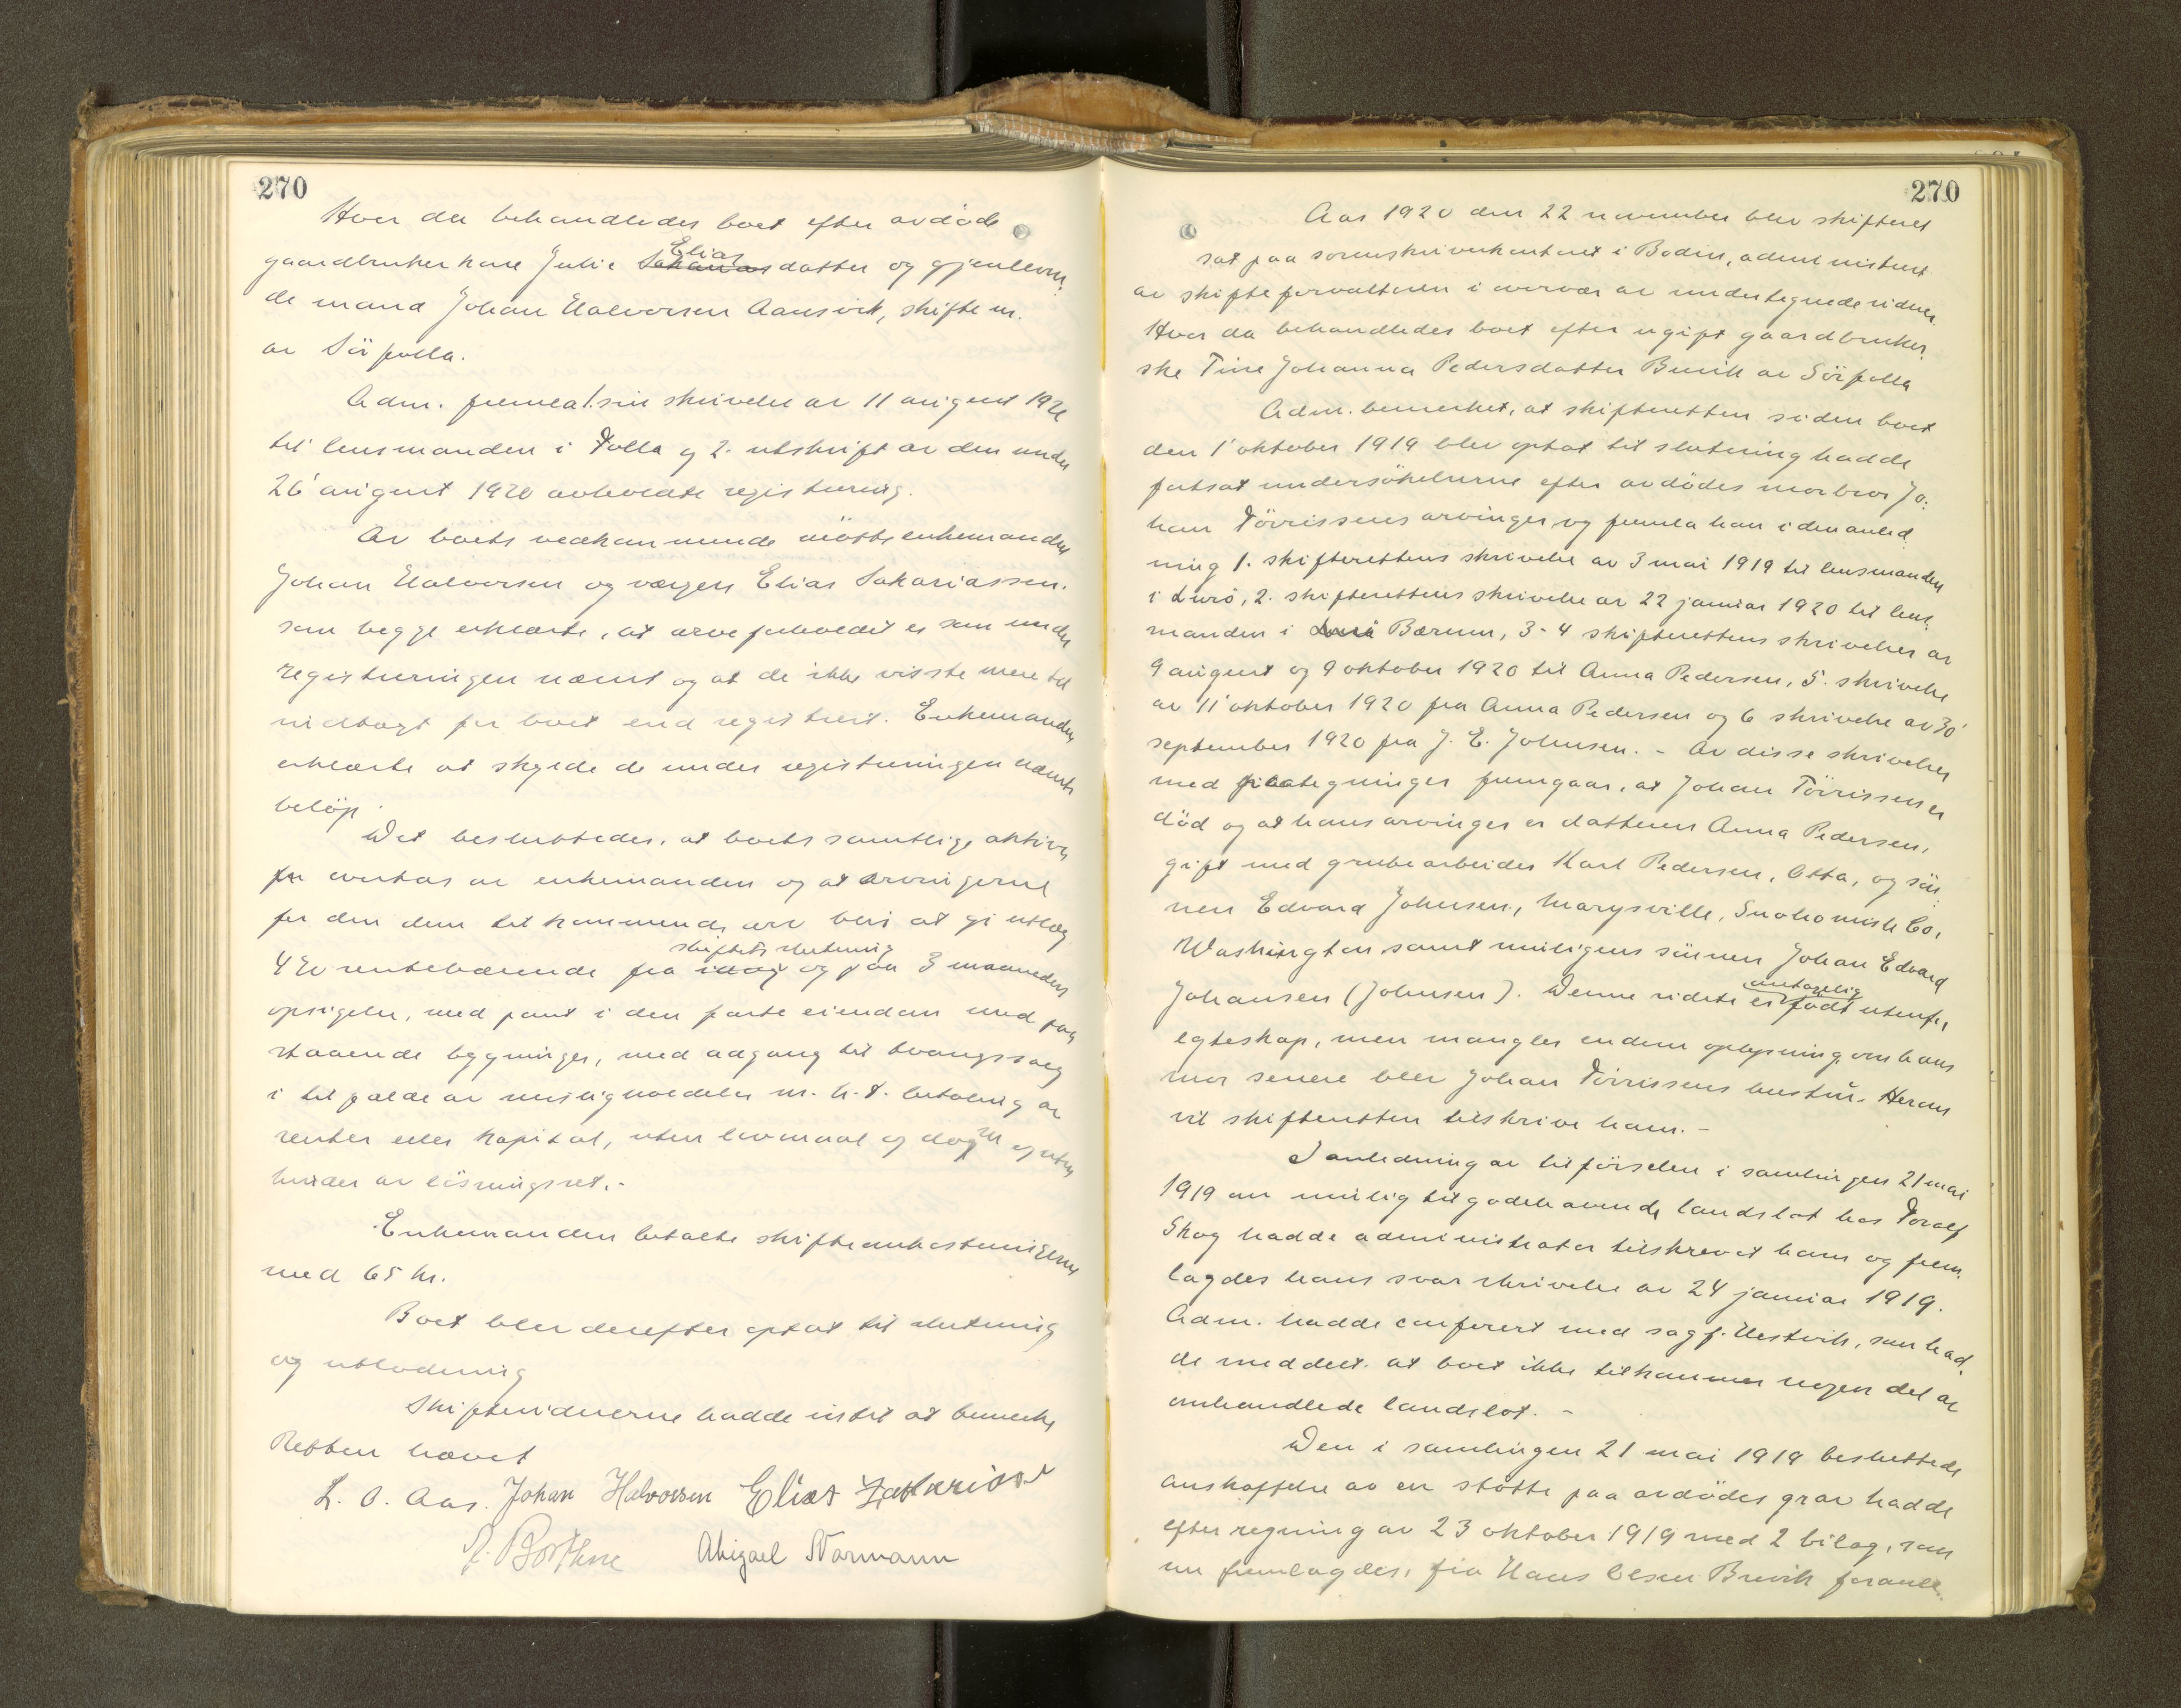 270
Hvor da behandledes boet efter avdøde
gaardbrukerkone Julie Elias
Sakariasdatter og gjenleven-
de mand Johan Halvorsen Aansvik, skifte nr.
av Sörfolla.
Adm. fremla 1. sin skrivelse av 11 august 1920
til lensmanden i Folla og 2. utskrift av den under
26' august 1920 avholdte registrering.
Av boets vedkommende mötte enkemanden
Johan Halvorsen og vergen Elias Sakariassen.
som begge erklærte, at arveforholdet er som under
registreringen nævnt og at de ikke visste mere til
indtægt for boet end registrert. Enkemanden
erklærte at skylde de under registreringen nævnte
beløp.
Det besluttedes, at boets samtlige aktiva
overtas av enkemanden og at arvingerne
for den dem tilkommende arv blir at gi utlæg
4% rentebærende fra idag skiftets slutning og paa 3 maaneders
opsigelse, med pant i den faste eiendom med paa-
staaende bygninger, med adgang til tvangssalg
i tilfælde av misligholdelse m. h. t. betaling av
renter eller kapital, uten lovmaal og dom og uten
hinder av løsningsret.-
Enkemanden betalte skifteomkostningerne
med 65 kr.
Boet blev derefter optat til slutning
og utlodning
Skiftevidnerne hadde intet at bemerke
Retten hævet
L. O. Aas. Johan Halvorsen Elias Zakarias
J. Borthne Abigael Normann
270
Aar 1920 den 22 november blev skifteret
sat paa sorenskriverkontoret i Bodin, administrert
av skifteforvalteren i overvær av undertegnede vidner.
Hvor da behandledes boet efter ugift gaardbruker-
ske Tine Johanna Pedersdatter Brevik av Sörfolla
Adm. bemerket, at skifteretten siden boet
den 1' oktober 1919 blev optat til slutning hadde
fortsat undersökelserne efter avdödes morbror Jo-
han Törrissens arvinger og fremla han i den anled-
ning 1. skifterettens skrivelse av 3 mai 1919 til lensmanden
i Lurö, 2. skifterettens skrivelse av 22 januar 1920 til lens-
manden i Lurö Bærum, 3-4 skifterettens skrivelser av
9 august og 9 oktober 1920 til Anna Pedersen, 5. skrivelse
av 11' oktober 1920 fra Anna Pedersen og 6 skrivelse av 30'
september 1920 fra J. E. Johnsen. - Av disse skrivelser
med paategninger fremgaar, at Johan Törrissen er
död og at hans arvinger er datteren Anna Pedersen,
gift med grubearbeider Karl Pedersen, Otta, og sön-
nen Edvard Johnsen, Marysville, Snohomish Co,
Washington samt muligens sönnen Johan Edvard
Johansen (Johnsen). Denne sidste er antagelig födt utenfor
egteskap, men mangler endnu oplysning om hans
mor senere blev Johan Törrissens hustru. Herom
vil skifteretten tilskrive ham. -
I anledning av tilförselen i samlingen 21 mai
1919 om mulig tilgodehavende landslot hos Toralf
Skog hadde administrator tilskrevet ham og frem-
lagdes hans svarskrivelse av 24 januar 1919.
Adm. hadde conferert med sagf. Vestvik, som had-
de meddelt at boet ikke tilkommer nogen del av
omhandlede landslot. -
Den i samlingen 21 mai 1919 besluttede
anskaffelse av en stötte paa avdödes grav hadde
efter regning av 23 oktober 1919 med 2 bilag, som
nu fremlagdes, fra Hans Olsen Brevik foranle-